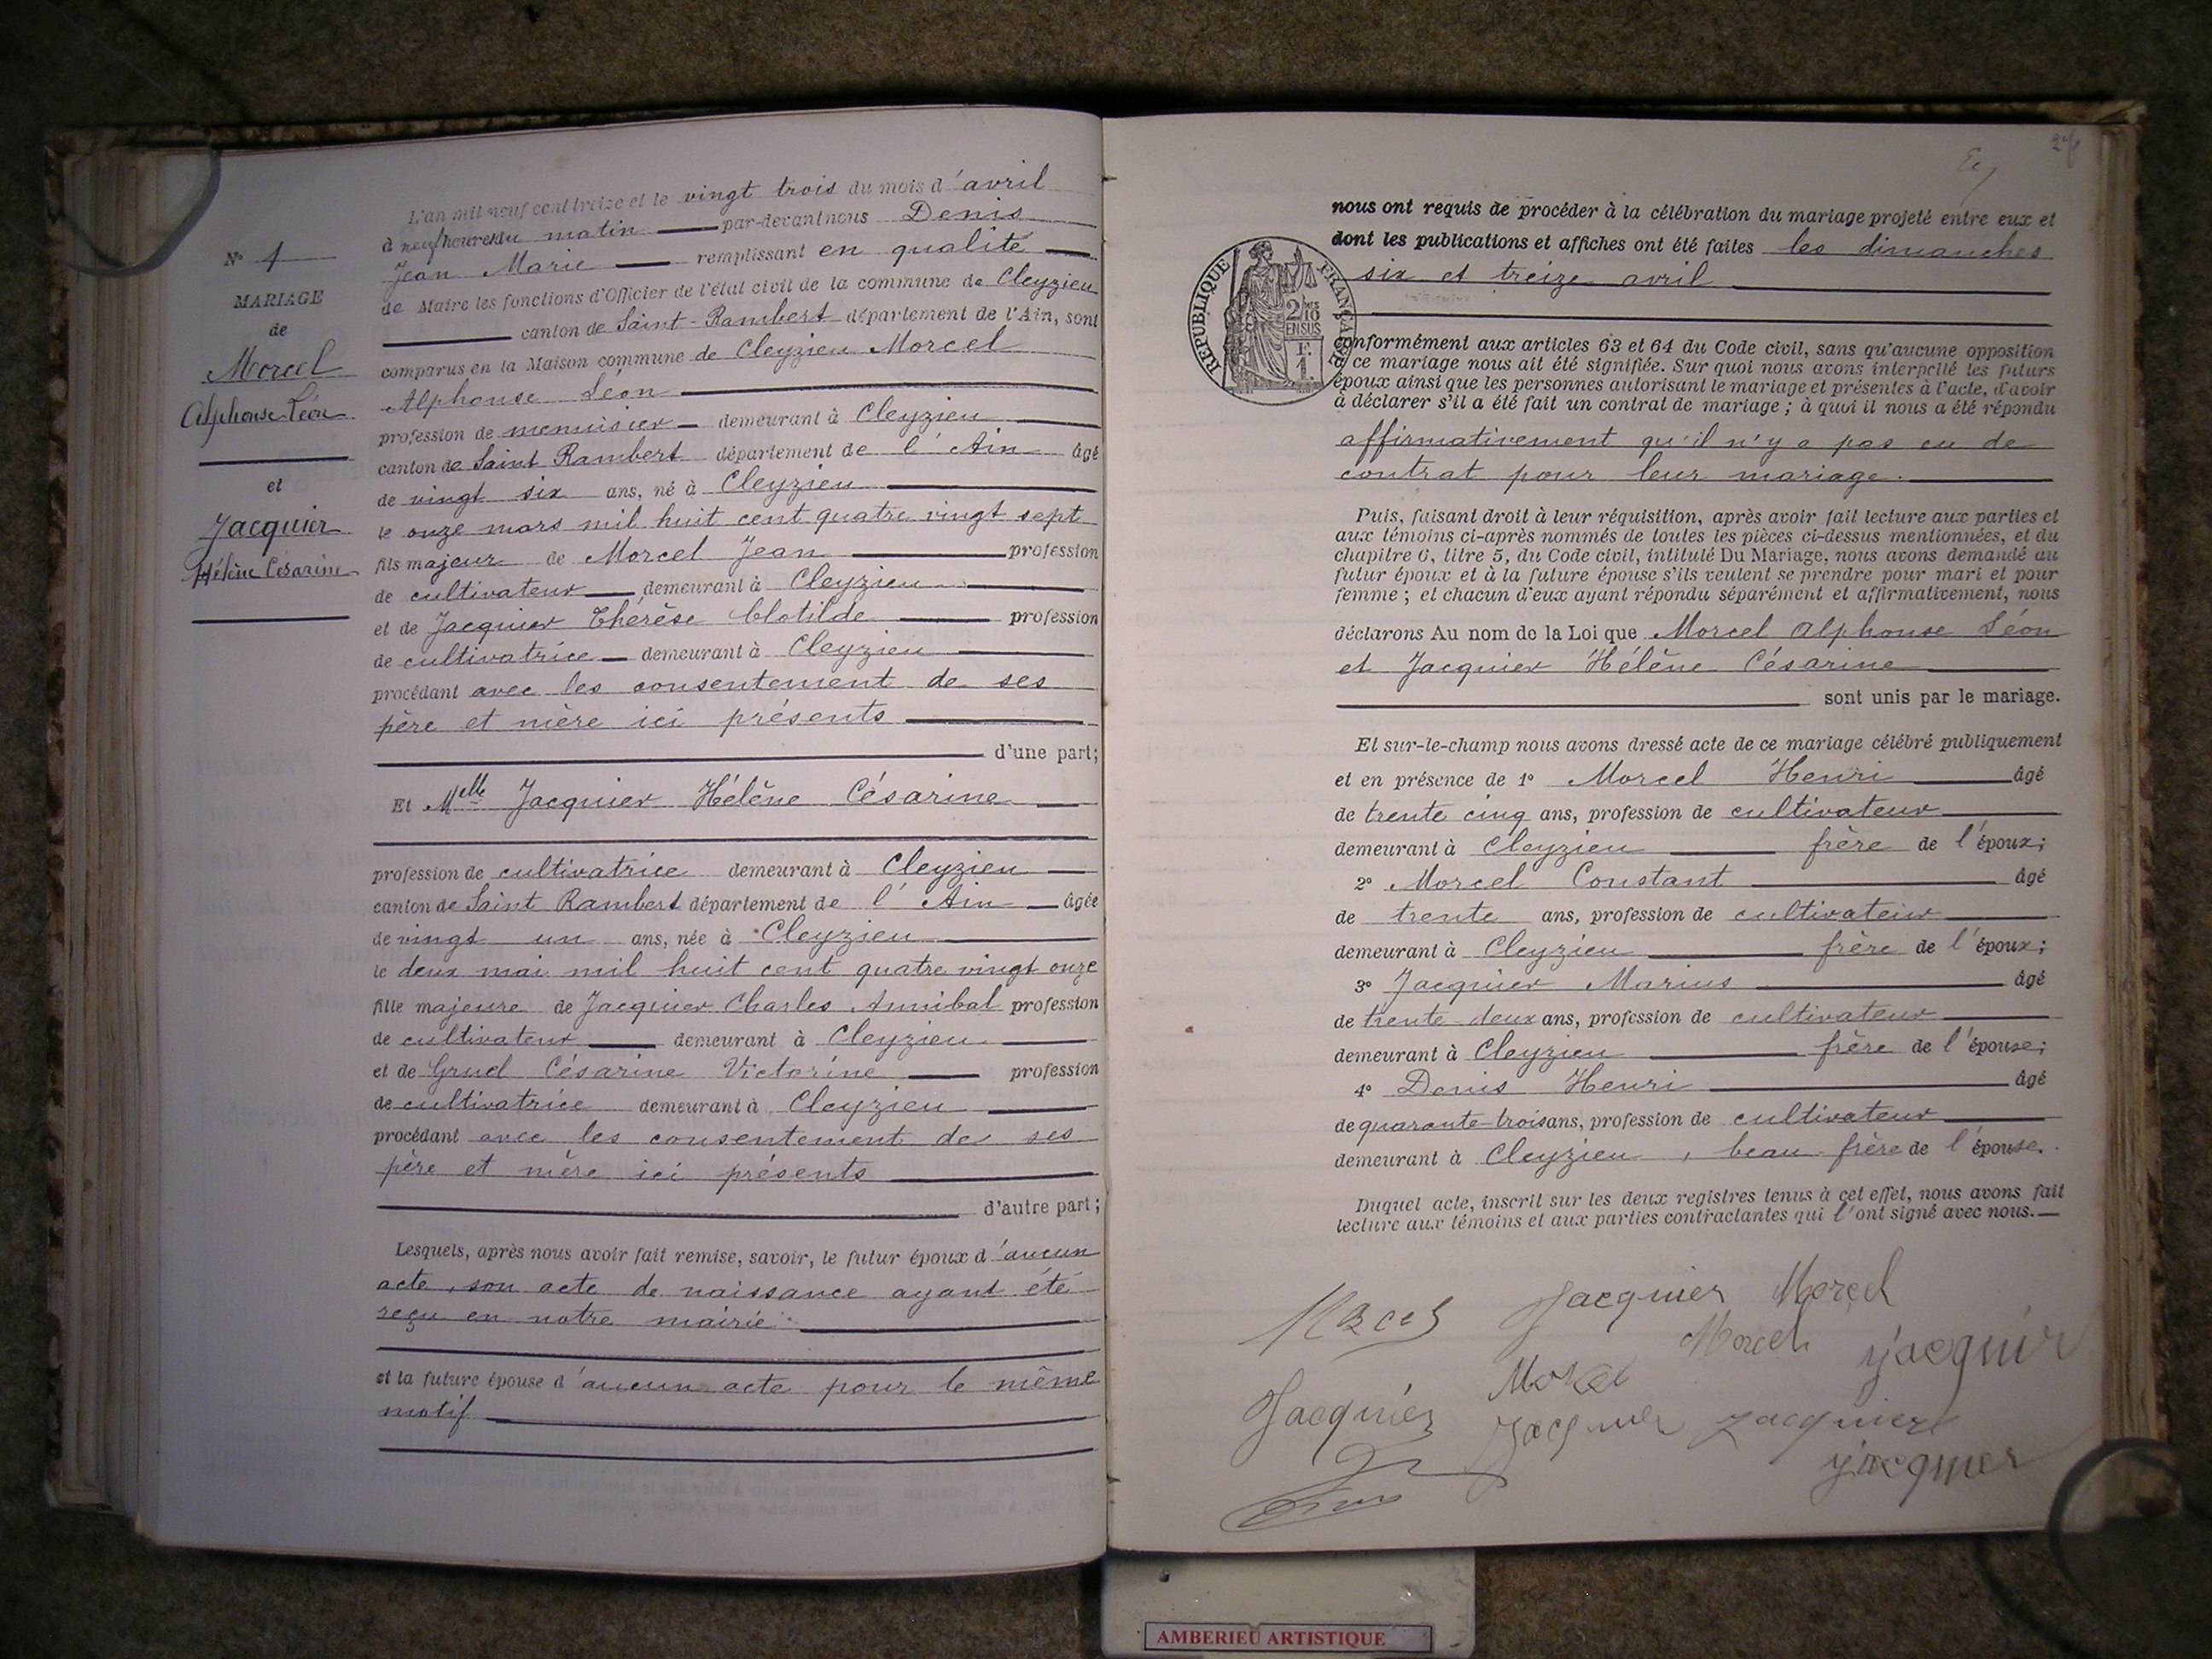 L'an mil neuf cent treize et le vingt trois du mois d'avril
à neuf heures du matin par-devant nous Denis
Jean Marie remplissant en qualité
de Maire les fonctions d'Officier de l'état civil de la commune de Cleyzieu
canton de Saint-Rambert département de l'Ain, sont
comparus en la Maison commune de Cleyzieu Morcel
Alphonse Léon
profession de menuisier demeurant à Cleyzieu
canton de Saint Rambert département de l'Ain âgé
de vingt six ans, né à Cleyzieu
le onze mars mil huit cent quatre vingt sept
fils majeur de Morcel Jean profession
de cultivateur demeurant à Cleyzieu
et de Jacquier Thérèse Clotilde profession
de cultivatrice demeurant à Cleyzieu
procédant avec les consentement de ses
père et mère ici présents
d'une part;
Et Melle Jacquier Hélène Césarine
profession de cultivatrice demeurant à Cleyzieu
canton de Saint Rambert département de l'Ain âgée
de vingt un ans, née à Cleyzieu
le deux mai mil huit cent quatre vingt onze
fille majeure de Jacquier Charles Annibal profession
de cultivateur demeurant à Cleyzieu
et de Grud Césarine Victorine profession
de cultivatrice demeurant à Cleyzieu
procédant avec les consentement de ses
père et mère ici présents
d'autre part;
Lesquels, après nous avoir fait remise, savoir, le futur époux d'aucun
acte, son acte de naissance ayant été
reçu en notre mairie.
et la future épouse d'aucun acte pour le même
motif
N° 1
MARIAGE
de
Morcel
Alphonse Léon
et
Jacquier
Hélène Césarine
nous ont requis de procéder à la célébration du mariage projeté entre eux et
dont les publications et affiches ont été faites les dimanches
six et treize avril
RÉPUBLIQUE FRANÇAISE
2/10
EN SUS
F.
1.
conformément aux articles 63 et 64 du Code civil, sans qu'aucune opposition
à ce mariage nous ait été signifiée. Sur quoi nous avons interpellé les futurs
époux ainsi que les personnes autorisant le mariage et présentes à l'acte, d'avoir
à déclarer s'il a été fait un contrat de mariage; à quoi il nous a été répondu
affirmativement qu'il n'y a pas eu de
contrat pour leur mariage.
Puis, faisant droit à leur réquisition, après avoir fait lecture aux parties et
aux témoins ci-après nommés de toutes les pièces ci-dessus mentionnées, et du
chapitre 6, titre 5, du Code civil, intitulé Du Mariage, nous avons demandé au
futur époux et à la future épouse s'ils veulent se prendre pour mari et pour
femme; et chacun d'eux ayant répondu séparément et affirmativement, nous
déclarons Au nom de la Loi que Morcel Alphonse Léon
et Jacquier Hélène Césarine
sont unis par le mariage.
Et sur-le-champ nous avons dressé acte de ce mariage célébré publiquement
et en présence de 1° Morcel Henri âgé
de trente cinq ans, profession de cultivateur
demeurant à Cleyzieu frère de l'époux;
2° Morcel Constant âgé
de trente ans, profession de cultivateur
demeurant à Cleyzieu frère de l'époux;
3° Jacquier Marius âgé
de trente deux ans, profession de cultivateur
demeurant à Cleyzieu frère de l'épouse;
4° Denis Henri âgé
de quarante trois ans, profession de cultivateur
demeurant à Cleyzieu, beau frère de l'épouse.
Duquel acte, inscrit sur les deux registres tenus à cet effet, nous avons fait
lecture aux témoins et aux parties contractantes qui l'ont signé avec nous.
Jacquier Morcel
Morcel
Morcel Jacquier
Jacquier
Jacquier Jacquier
Jacquier
AMBERIEU ARTISTIQUE